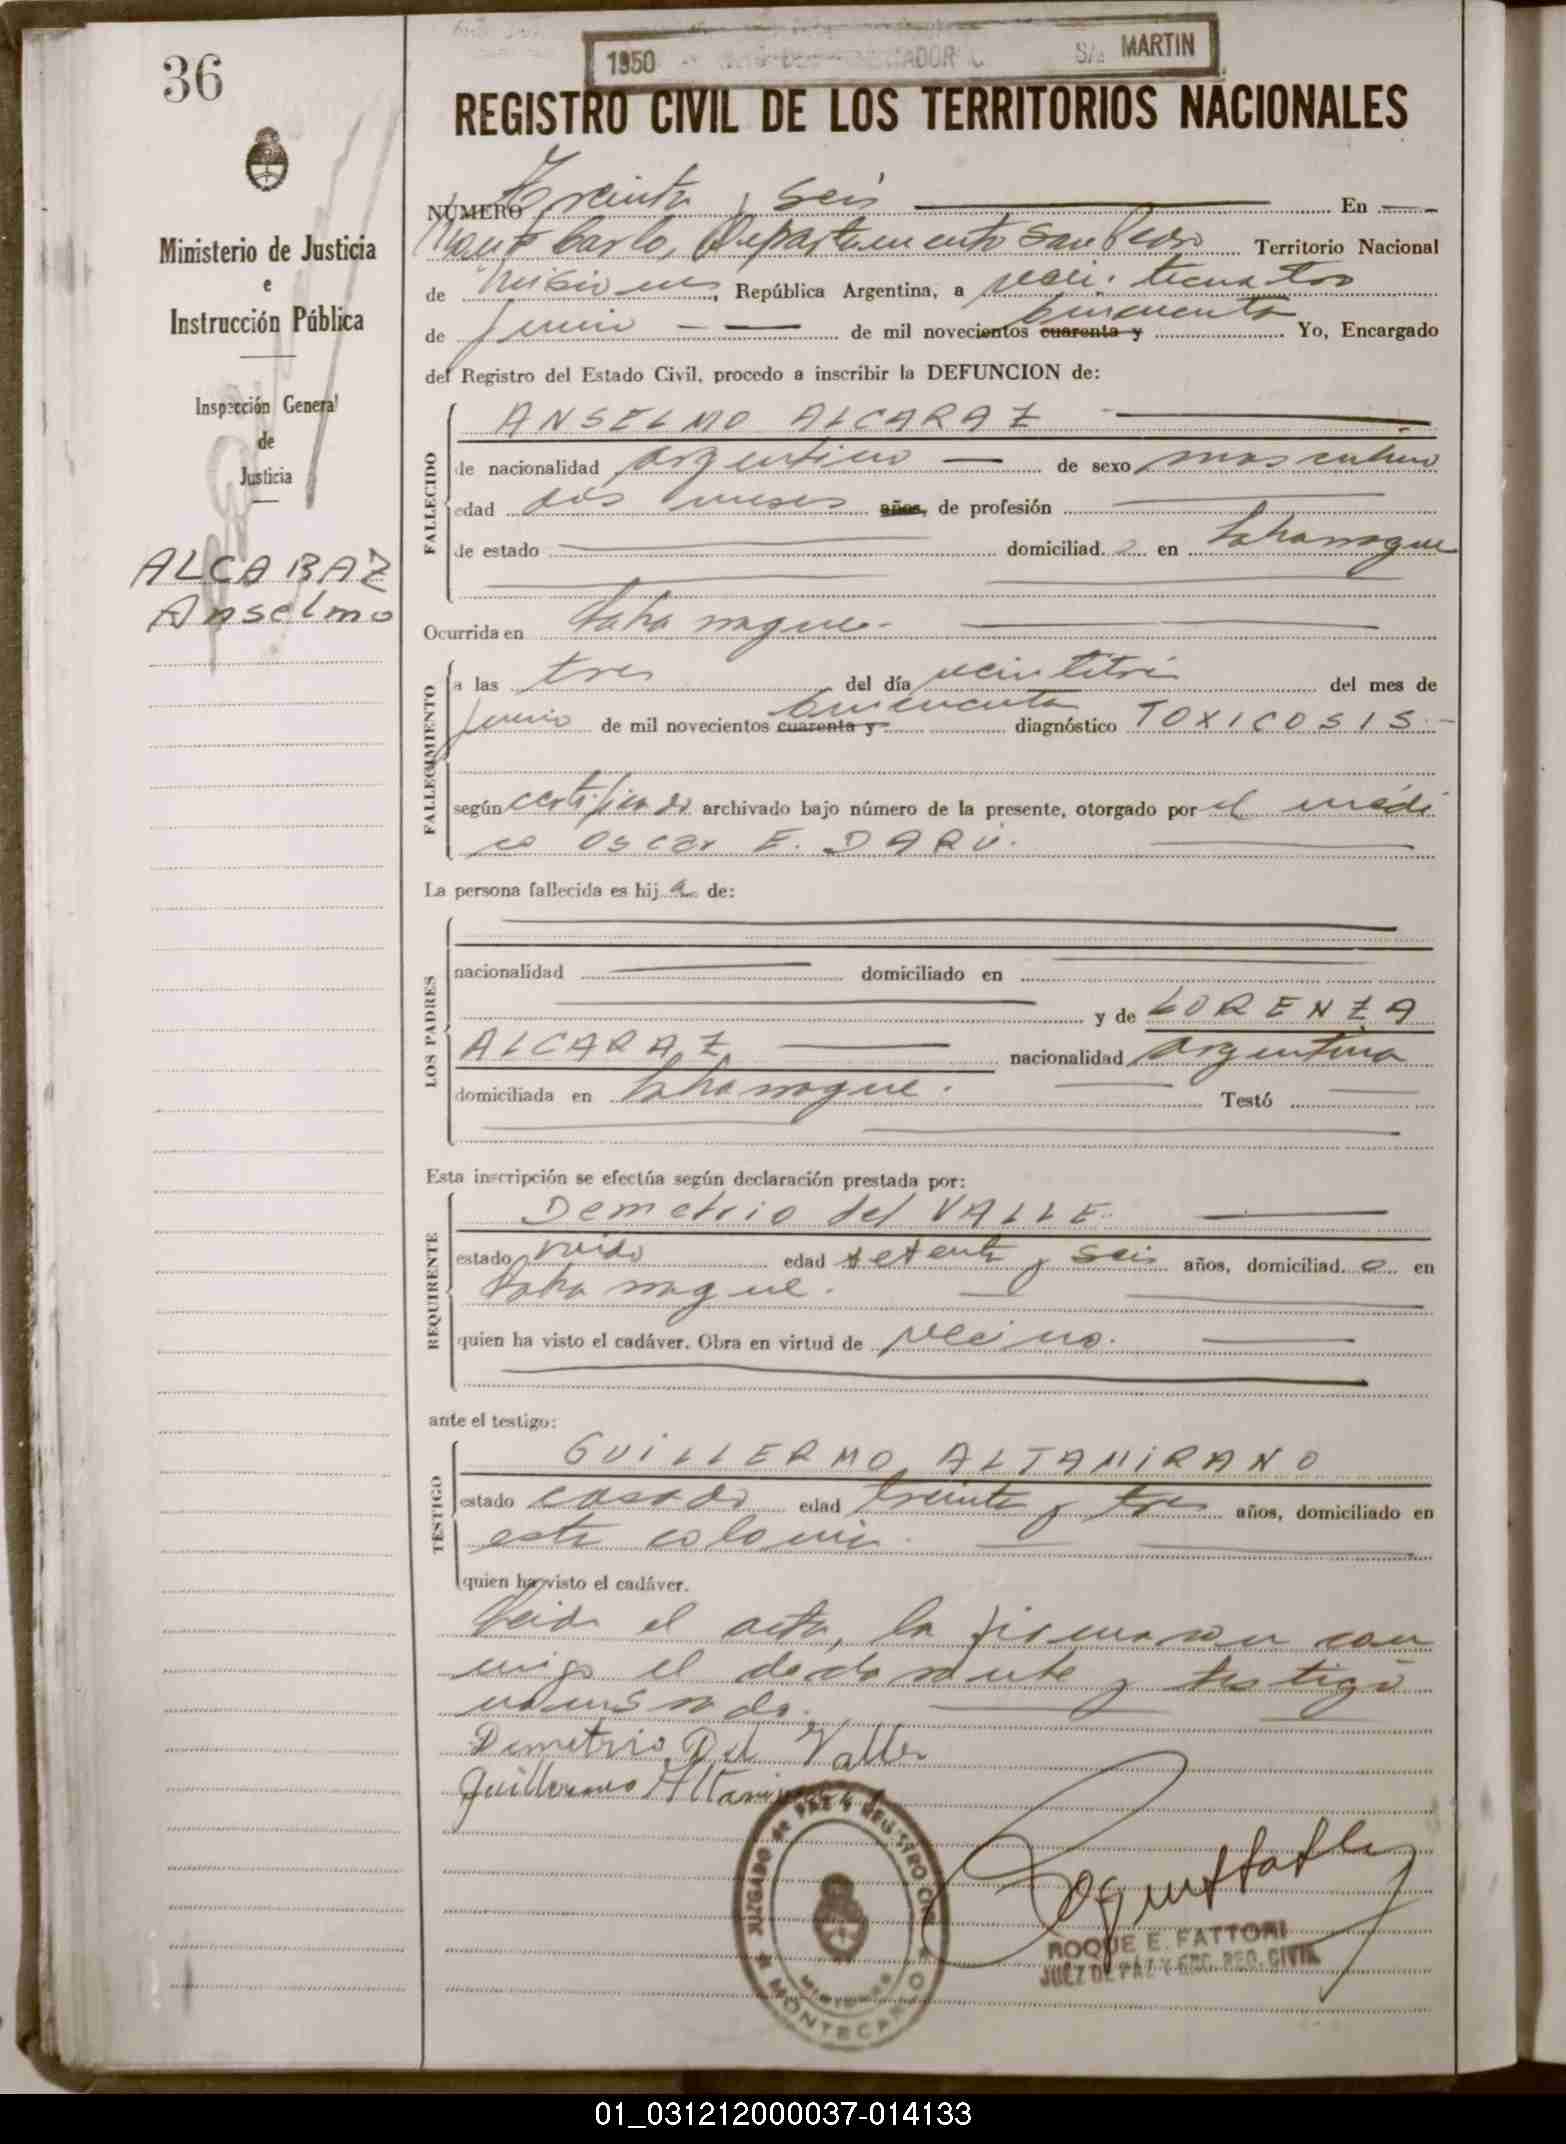 36
1950 MARTIN
REGISTRO CIVIL DE LOS TERRITORIOS NACIONALES
Ministerio de Justicia
e
Instrucción Pública
Inspección General
de
Justicia
ALCARAZ
Anselmo
NUMERO Treinta y seis En
Monte Carlo, Departamento San Pedro Territorio Nacional
de Misiones, República Argentina, a veinticuatro
de Junio de mil novecientos cuarenta y cincuenta Yo, Encargado
del Registro del Estado Civil, procedo a inscribir la DEFUNCION de:
FALLECIDO
ANSELMO ALCARAZ
de nacionalidad argentino de sexo masculino
edad dos meses años, de profesión
de estado domiciliad. o en
Ocurrida en
FALLECIMIENTO
a las tres del día veintitrés del mes de
Junio de mil novecientos cuarenta y cincuenta diagnóstico TOXICOSIS.
según certificado archivado bajo número de la presente, otorgado por el médi
co Oscar E. DARÚ.
La persona fallecida es hij de:
LOS PADRES
nacionalidad domiciliado en
y de LORENZA
ALCARAZ nacionalidad argentina
domiciliada en Testó
Esta inscripción se efectúa según declaración prestada por:
REQUIRENTE
Demetrio del VALLE
estado viudo edad setenta y seis años, domiciliad. o en
quien ha visto el cadáver. Obra en virtud de vecino.
ante el testigo:
TESTIGO
GUILLERMO ALTAMIRANO
estado casado edad treinta y tres años, domiciliado en
esta colonia.
quien ha visto el cadáver.
Leida el acta, la firmaron con
migo el declarante y testigo
Demetrio Del Valle
Guillermo Altamirano
JUZGADO de PAZ Y REGISTRO CIVIL
MISIONES
MONTECARLO
ROQUE E. FATTORI
JUEZ DE PAZ Y ENC. REG. CIVIL
01_031212000037-014133